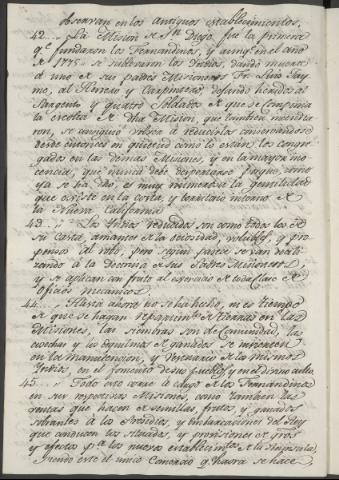 observan en los antiguos establecimientos,
42... La Mision de Sn. Diego, fue la primera
qe. fundaron los Fernandinos, y aunqe. en el año
de 1775 se sublevaron los Yndios, dando muerte
á uno de sus padres Misioneros Fr. Luis Jay-
me, al Herrero y Carpintero, dejando heridos al
Sargento y quatro Soldados de que se componia
la escolta de dha Mision, que tambien incendia-
ron, se consiguio volver á reducirlos conservandose
desde entonces en quietud como lo estan los congre-
gados en las demas Misiones, y en la mayor ino-
cencia, que nunca debe despertarse porque, como
ya se ha dho, es muy numerosa la gentilidad
que existe en la costa, y territorio interno de
la Nueva California
43... Los Yndios reducidos son como todos los de
su Casta, amantes de la ociosidad, volubles, y pro-
pensos al robo, pero segun parece se van suavi-
zando á la Doctrina de sus Padres Misioneros
y se aplican con fruto al exercicio de trabajar de
oficios mecanicos
44... Hasta ahora no se ha hecho, ni es tiempo
de que se hagan repartimtos. de tierras en las
Misiones, las siembras son de Comunidad, las
cosechas y los esquilmos de ganados se invierten
en la manutencion, y vestuario de los mismos
Yndios, en el fomento de sus pueblos, y en el divino culto.
45... Todo esto corre al cargo de los Fernandinos
en sus respectivas Misiones, como tambien las
ventas que hacen de semillas, frutos, y ganados
sobrantes á los Presidios, y embarcaciones del Rey
que conducen los situados, y provisiones de generos
y efectos pa. los nuevos establecimtos. de la Peninsula,
siendo este el unico Comercio qe. hasta se hace